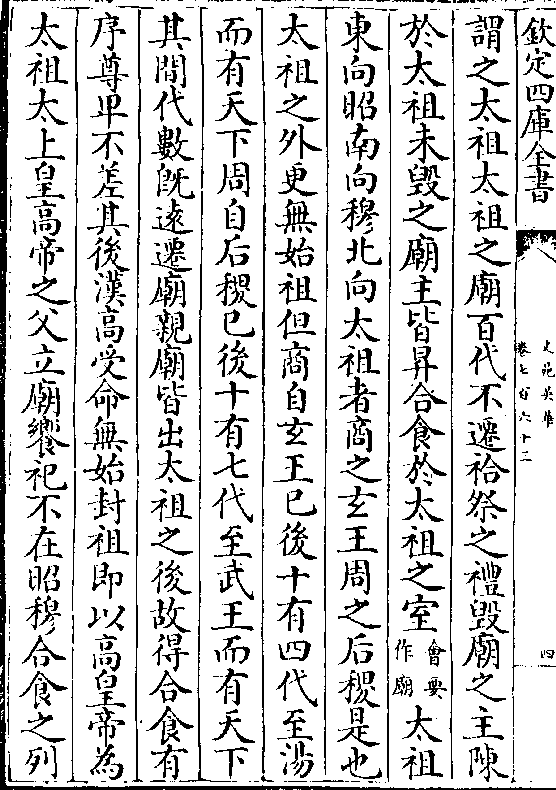 欽定四庫全書
文苑英華
卷七百六十二
四
謂之太祖太祖之廟百代不遷祫祭之禮毁廟之主陳
於太祖未毁之廟主皆昇合食於太祖之室會要作廟太祖
東向昭南向穆北向太祖者商之玄王周之后稷是也
太祖之外更無始祖但商自玄王已後十有四代至湯
而有天下周自后稷已後十有七代至武王而有天下
其間代數既遠遷廟親廟皆出太祖之後故得合食有
序尊卑不差其後漢高受命無始封祖即以高皇帝為
太祖太上皇高帝之父立廟饗祀不在昭穆合食之列